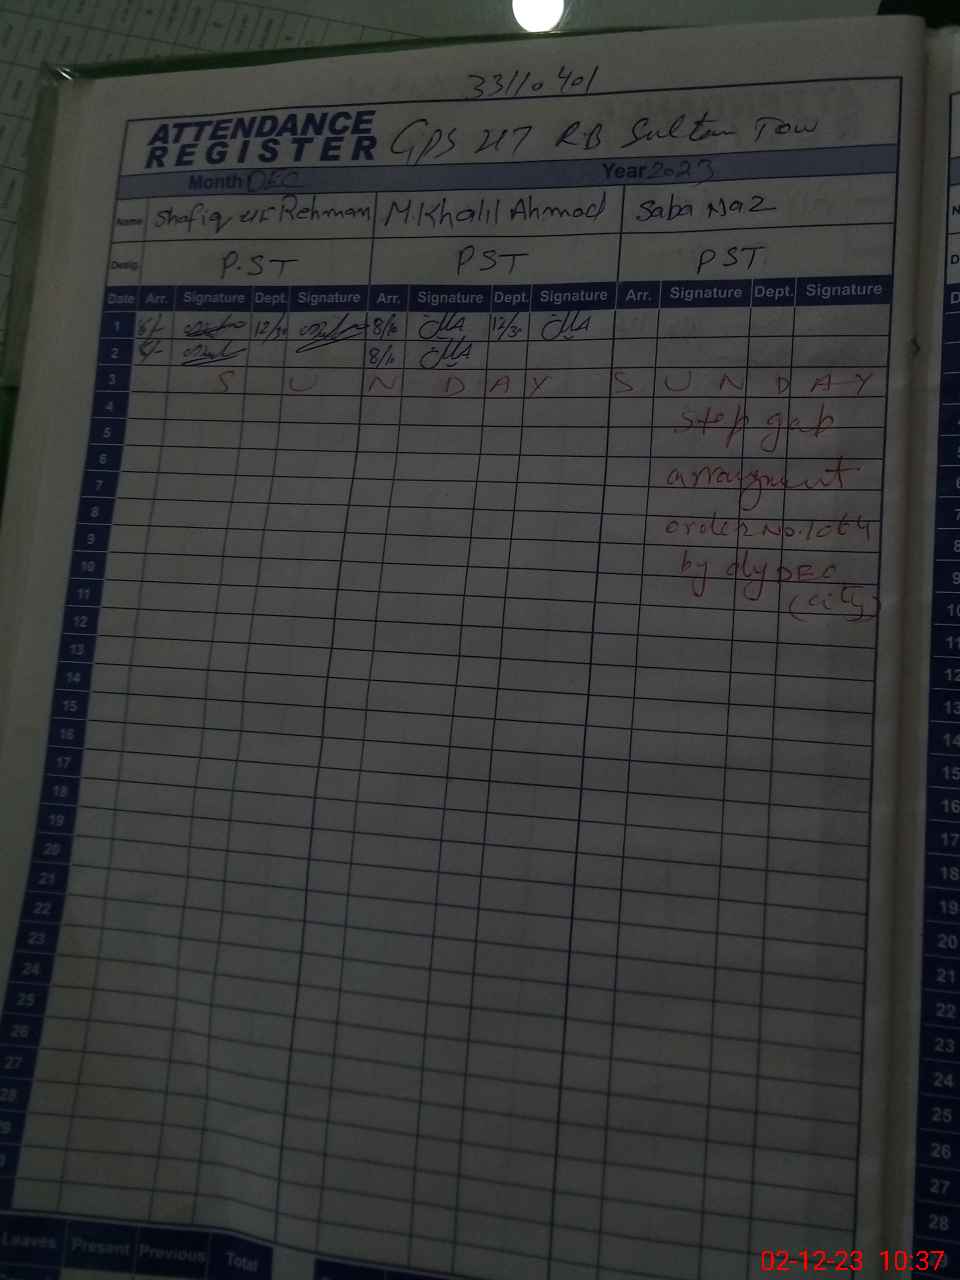 33110401
ATTENDANCE REGISTER GPS 217 RB Sultan Tow
Month DEC Year 2023
Name Shafiq ur Rehman M.Khalil Ahmad Saba Naz
Desig. P.ST PST PST
Date Arr. Signature Dept. Signature Arr. Signature Dept. Signature Arr. Signature Dept. Signature
1 12/30 8/10 12/30
2 8/10
3 S U N D A Y S U N D A Y
4
stop gap
5
6
arrangment
7
8
order No.1064
9
10 by dy DEO
11 (city)
12
13
14
15
16
17
18
19
20
21
22
23
24
25
26
27
28
Leaves Present Previous Total
02-12-23 10:37